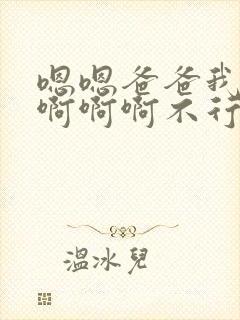 嗯嗯爸爸我
啊啊啊不行
溫冰兒